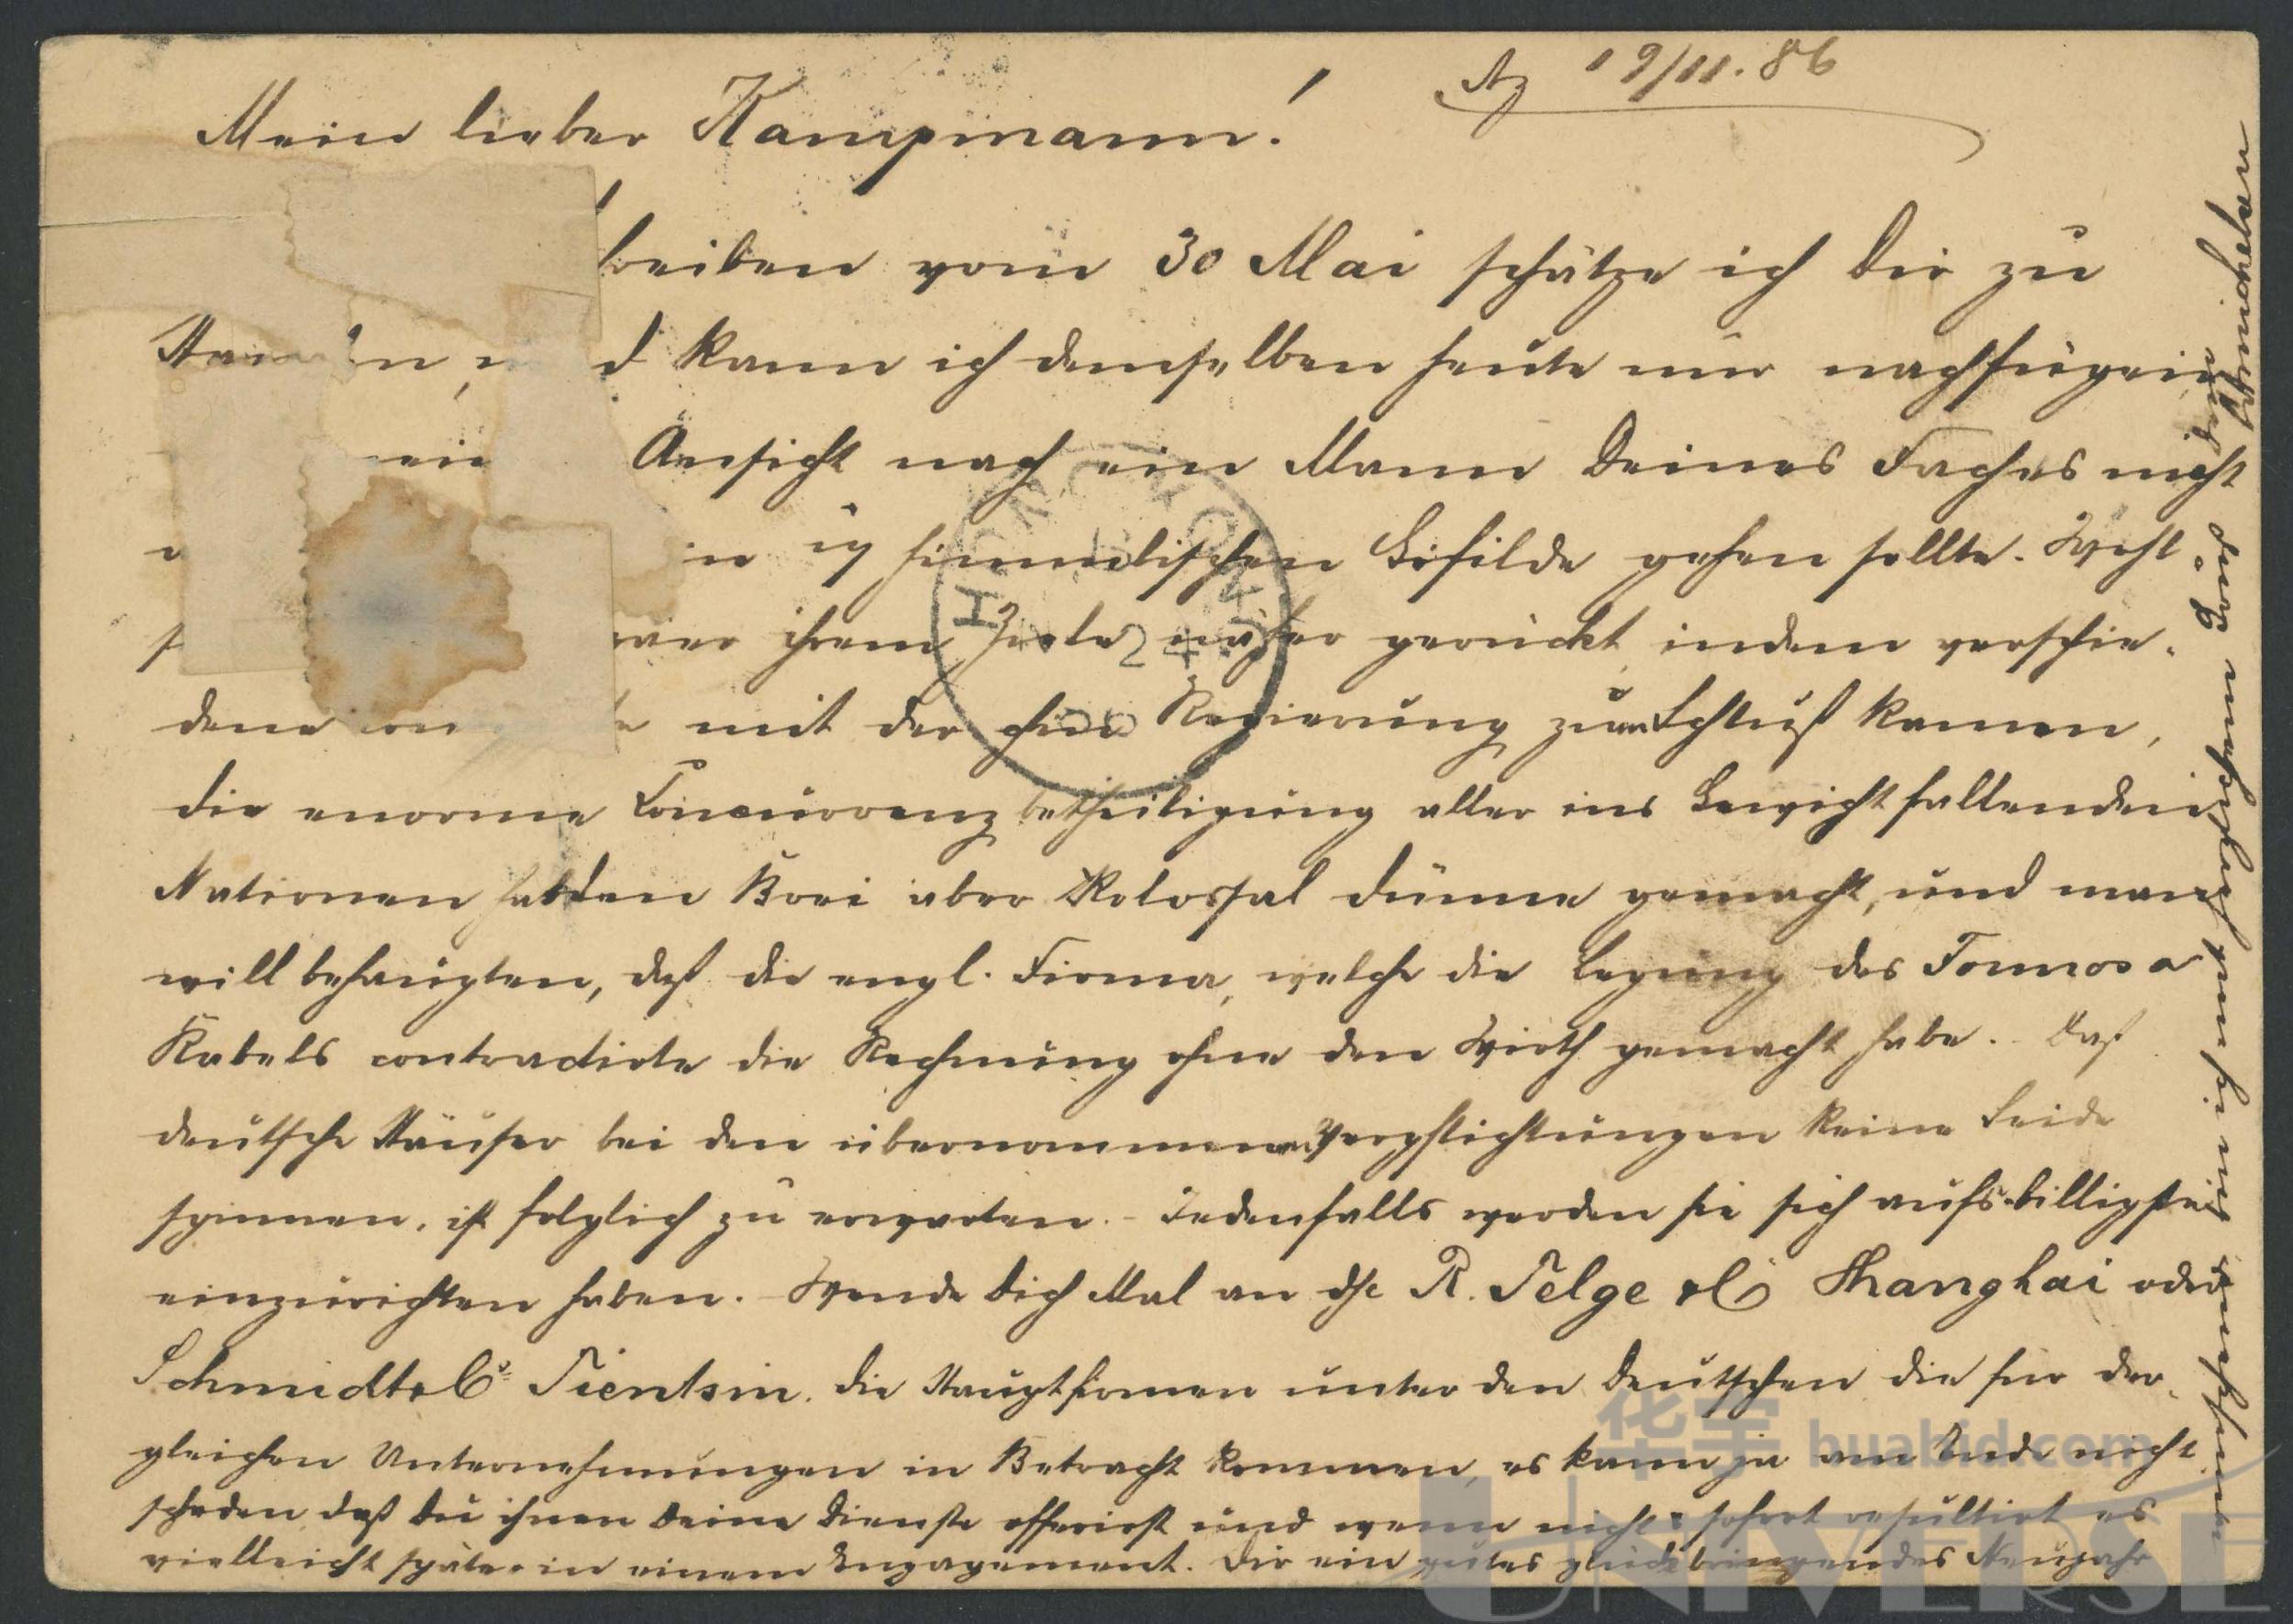 19/11. 86
Mein lieber Kampmann!
reiben vom 30 Mai schätze ich Dir zu
kann ich demselben heute nur nachfügen
Ansicht nach ein Mann Deines Faches nicht
himmlischen Gefilde gehen sollte. Wohl
ihrem Ziele näher gerückt, indem verschie-
dene mit der chin Regierung zum Schluß kamen,
die enorme Concurrenz betheiligung aller ins Gewicht fallenden
Nationen hat den Brei aber Kolossal dünne gemacht, und man
will behaupten, daß die engl. Firma, welche die Legung des Formosa
Kabels contractirte die Rechnung ohne den Wirth gemacht habe. - Daß
deutsche Häuser bei den übernommenen Verpflichtungen keine Seide
spinnen, ist folglich zu erwarten. - Jedenfalls werden sie sich aufs billigste
einzurichten haben. - Wende Dich Mal an R. Telge & Co Shanghai oder
Schmidt & Co Tientsin. die Hauptfirmen unter den Deutschen die für der-
gleichen Unternehmungen in Betracht kommen, es kann ja am Ende nicht
schaden daß Du ihnen Deine Dienste offerirst und wenn nicht sofort resultirt es
vielleicht später in einem Engagement. Dir ein gutes glückbringendes Neujahr
wünschend
HONG KONG
24
86
华宇 huabid.com
UNIVERSE